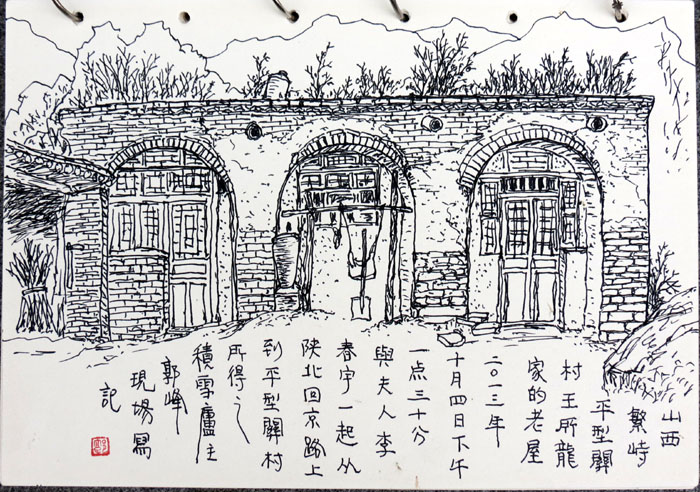 山西
繁峙
平型關
村王所龍
家的老屋
二〇一三年
十月四日下午
一点三十分
與夫人李
春宇一起从
陝北回京路上
到平型關村
所得之
積雪廬主
郭峰
現場寫
記